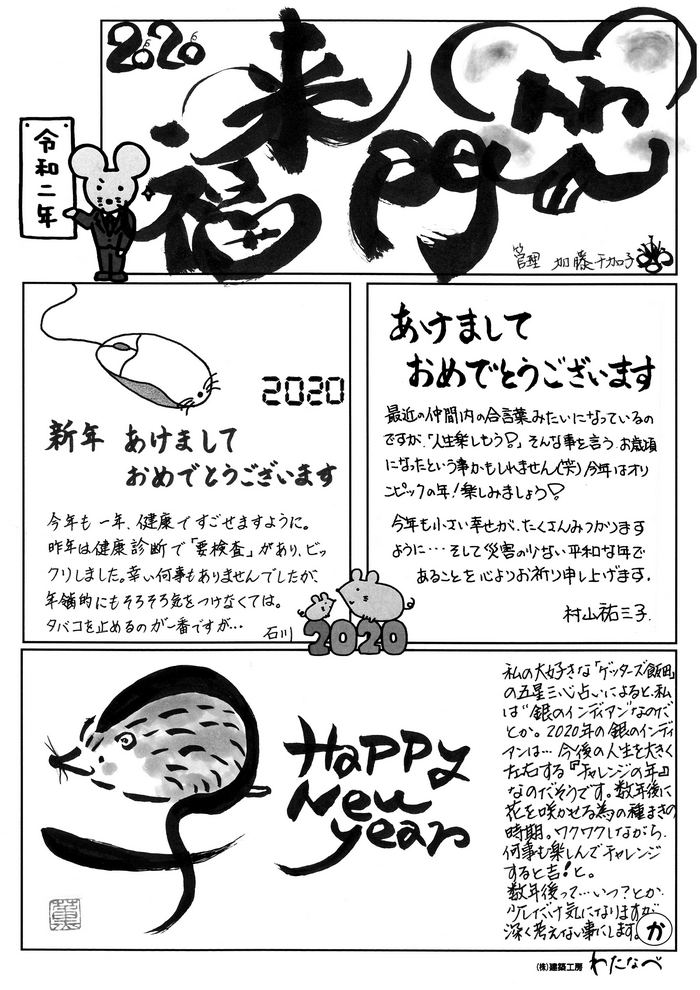 2020
笑門
来福
令和二年
管理 加藤千加子
2020
新年 あけまして
おめでとうございます
今年も一年、健康ですごせますように。
昨年は健康診断で「要検査」があり、ビッ
クリしました。幸い何事もありませんでしたが、
年齢的にもそろそろ気をつけなくては。
タバコを止めるのが一番ですが…
石川
あけまして
おめでとうございます
最近の仲間内の合言葉みたいになっているの
ですが、「人生楽しもう!」。そんな事を言うお歳頃
になったという事かもしれません(笑)今年はオリ
ンピックの年!楽しみましょう!
今年も小さい幸せが、たくさんみつかります
ように…そして災害の少ない平和な年で
あることを心よりお祈り申し上げます。
村山祐三子
2020
Happy
New
year
私の大好きな「ゲッターズ飯田」
の五星三心占いによると、私
は“銀のインディアン”なのだ
とか。2020年の銀のインディ
アンは…今後の人生を大きく
左右する『チャレンジの年』
なのだそうです。数年後に
花を咲かせる為の種まきの
時期。ワクワクしながら、
何事も楽しんでチャレンジ
すると吉!と。
数年後って…いつ?とか、
少しだけ気になりますが、
深く考えない事にします。
か
(株)建築工房 わたなべ